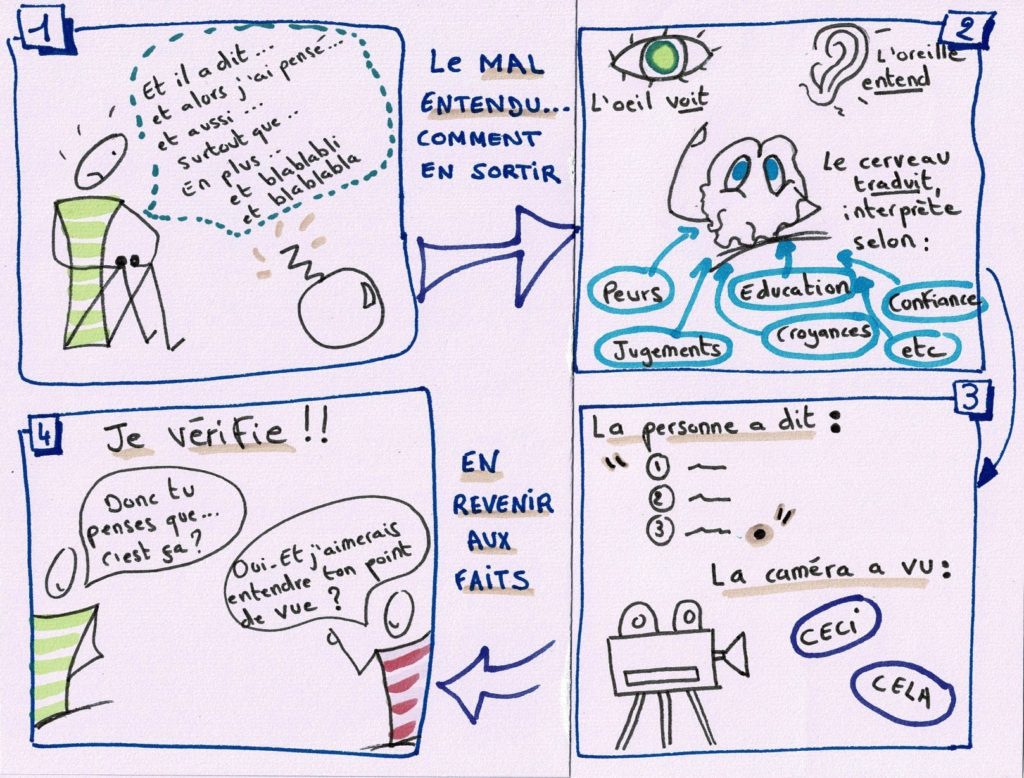 1
Et il a dit...
et alors j'ai pensé...
et aussi...
surtout que...
En plus..
et blablabli
et blablabla
Le MAL
ENTENDU...
COMMENT
EN SORTIR
2
L'oeil voit
L'oreille
entend
Le cerveau
traduit,
interprète
selon :
Peurs
Education
Confiance
Jugements
Croyances
etc
3
La personne a dit :
"
1
2
3
"
La caméra a vu :
CECI
CELA
EN
REVENIR
AUX
FAITS
4
Je vérifie !!
Donc tu
penses que...
c'est ça ?
Oui. Et j'aimerais
entendre ton point
de vue ?